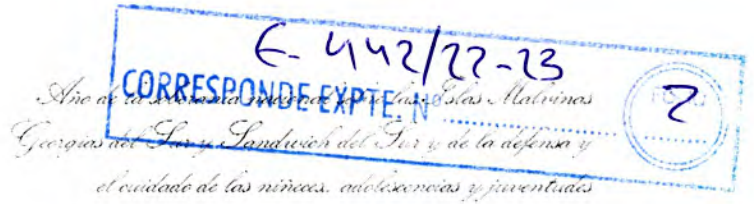 E-442/22-23
CORRESPONDE EXPTE. Nº
2
Año de la soberanía nacional sobre las Islas Malvinas
Georgias del Sur y Sandwich del Sur y de la defensa y
el cuidado de las niñeces, adolescencias y juventudes